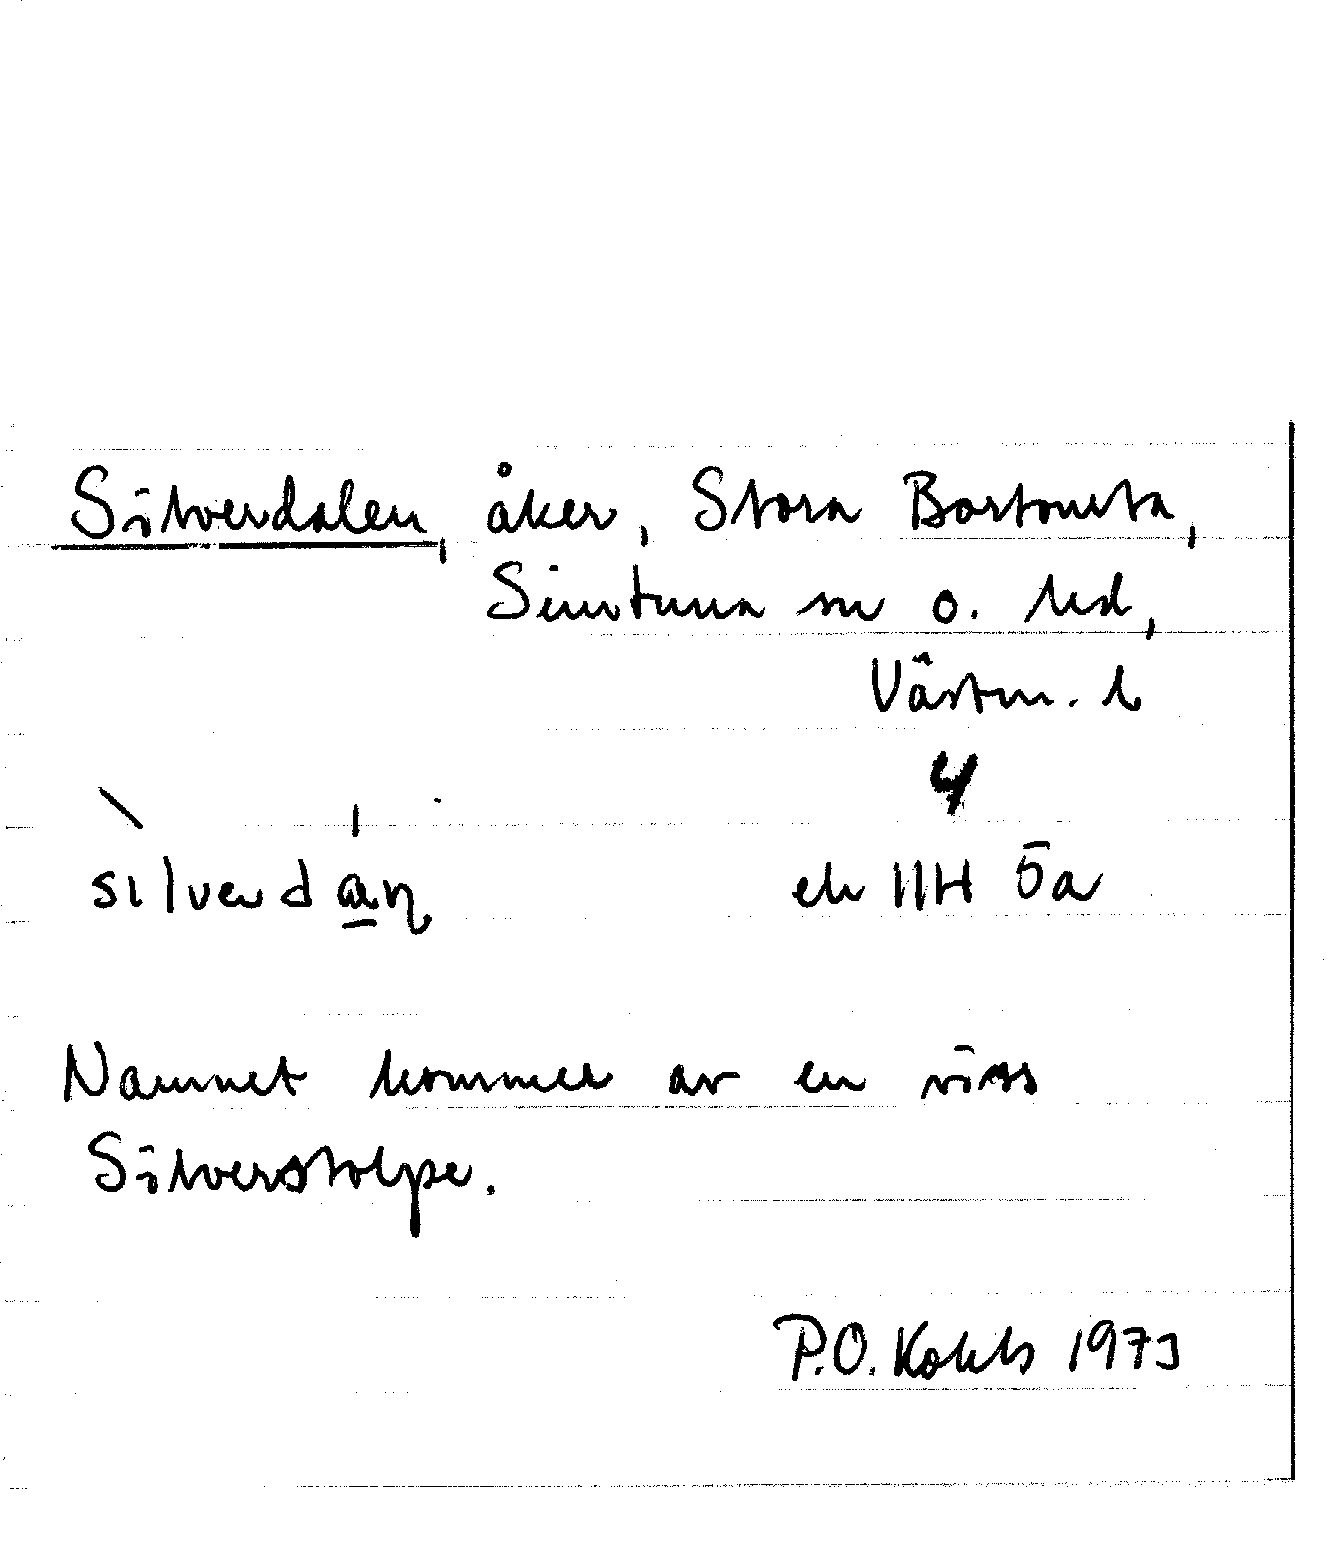 Silverdalen, åker, Stora Bärtomta,
Simtuna sn o. hd,
Västm. l
4
silverdaɳ ek 11H 5a
Namnet kommer av en viss
Silverstolpe.
P.O. 1973